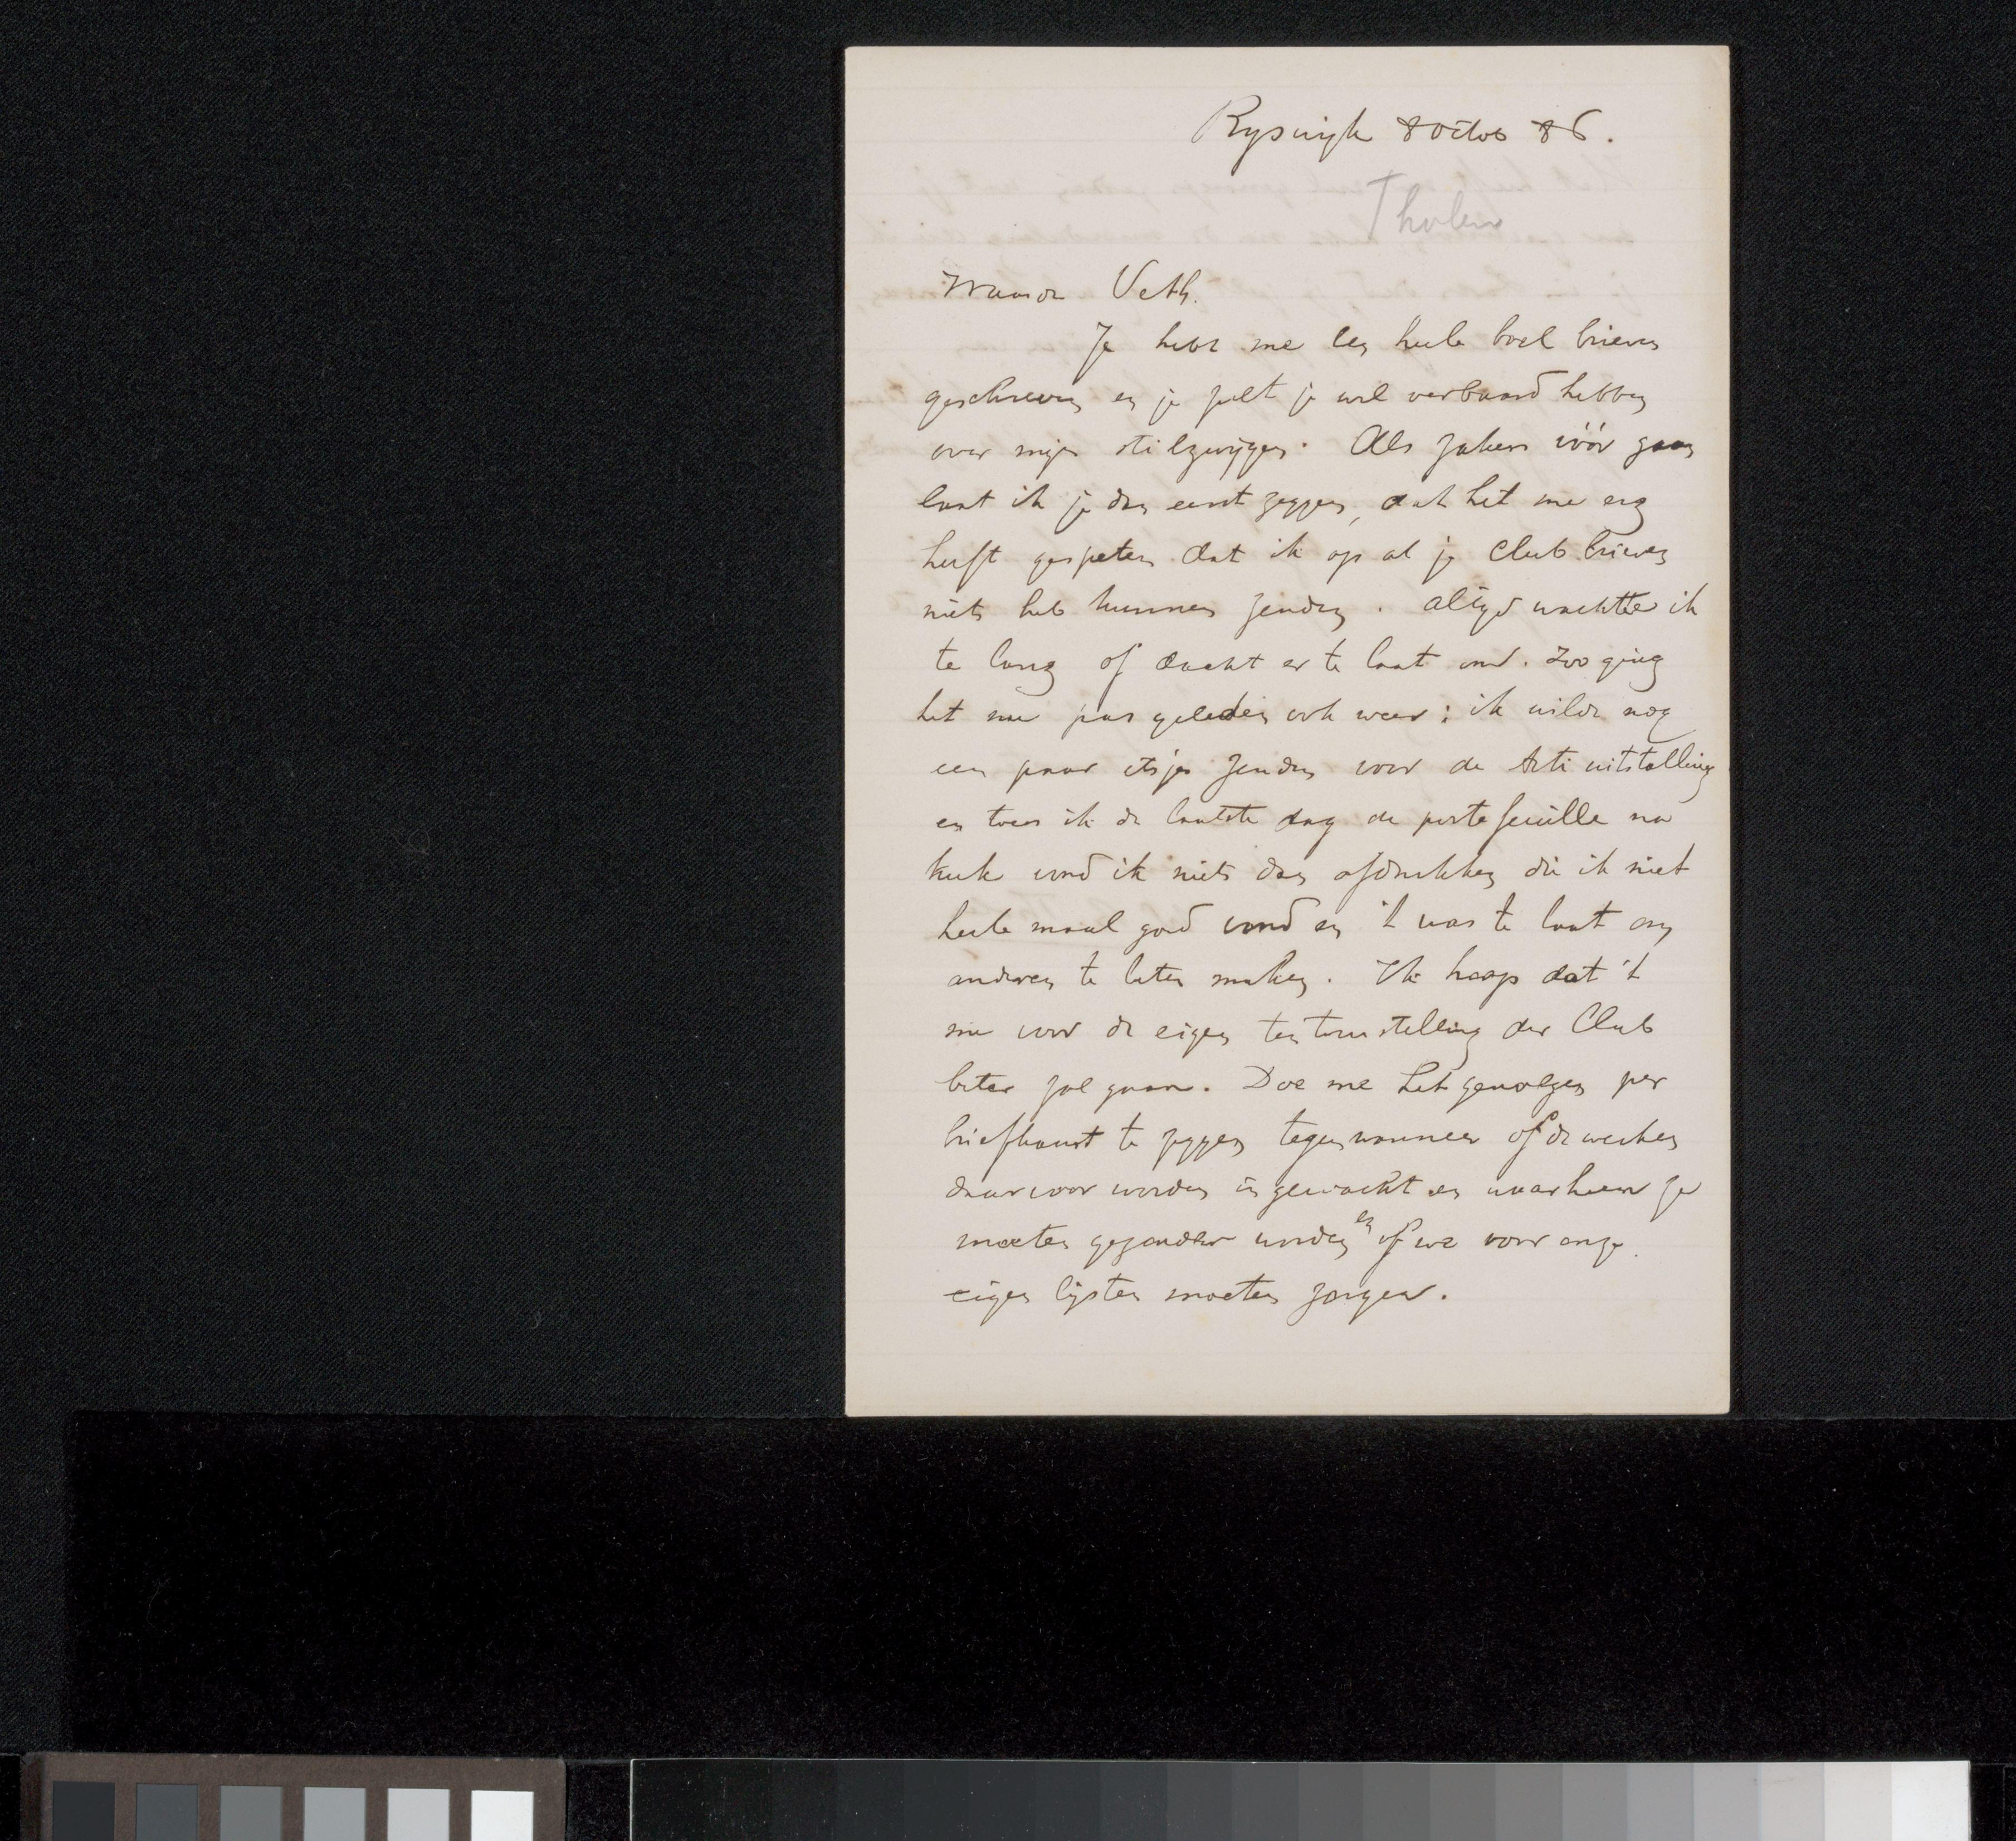 Ryswijk 8 octob 86.
Tholen
Waarde Veth.
Je hebt me een heele boel brieven
geschreven en je zult je wel verbaasd hebben
over mijn stilzwijgen. Als zaken vóór gaan
laat ik je dan eerst zeggen, dat het me erg
heeft gespeten dat ik op al je Club brieven
niets heb kunnen zenden. altijd wachtte ik
te lang of dacht er te laat om. Zoo ging
het me pas geleden ook weer; ik wilde nog
een paar etsjes zenden voor de Arti uitstalling
en toen ik de laatste dag de portefeuille na
keek vond ik niets dan afdrukken die ik niet
heele maal goed vond en 't was te laat om
anderen te laten maken. Ik hoop dat 't
me voor de eigen tentoonstelling der Club
beter zal gaan. Doe me het genoegen per
briefkaart te zeggen tegen wanneer of de werken
daarvoor worden ingewacht en waarheen ze
moeten gezonden worden en of we voor onze
eigen lijsten moeten zorgen.